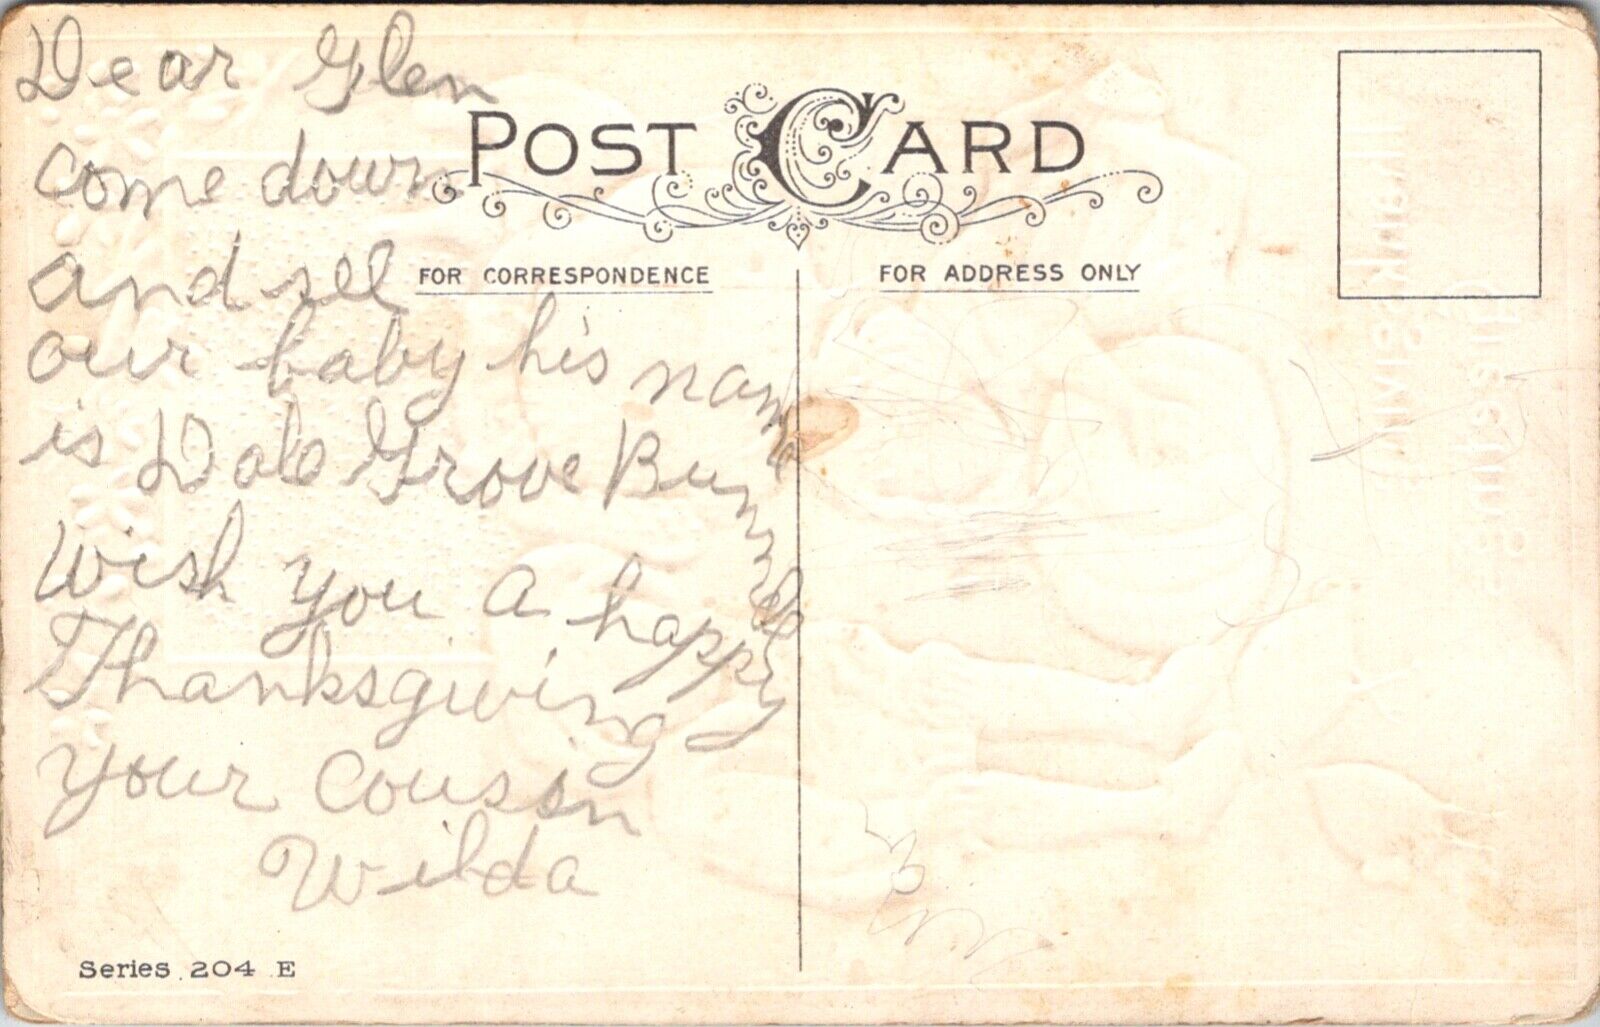 Dear Glen
POST CARD
come down
and see
FOR CORRESPONDENCE
FOR ADDRESS ONLY
our baby his name
is Dale Grove
wish you a happy
Thanksgiving
your cousin
Wilda
Series 204 E